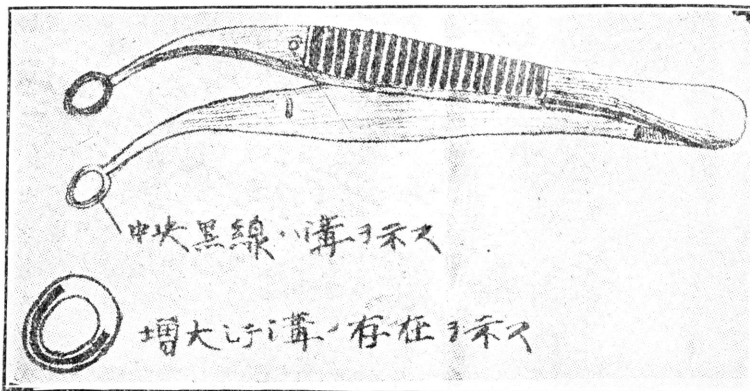 中央黒線ハ溝ヲ示ス
増大シテ溝ノ存在ヲ示ス